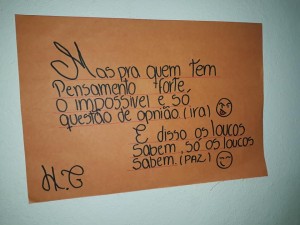 Mas pra quem tem
Pensamento forte,
o impossível é só
questão de opinião. (ira)
E disso os loucos
Sabem. só os loucos
Sabem. (PAZ)
H.C